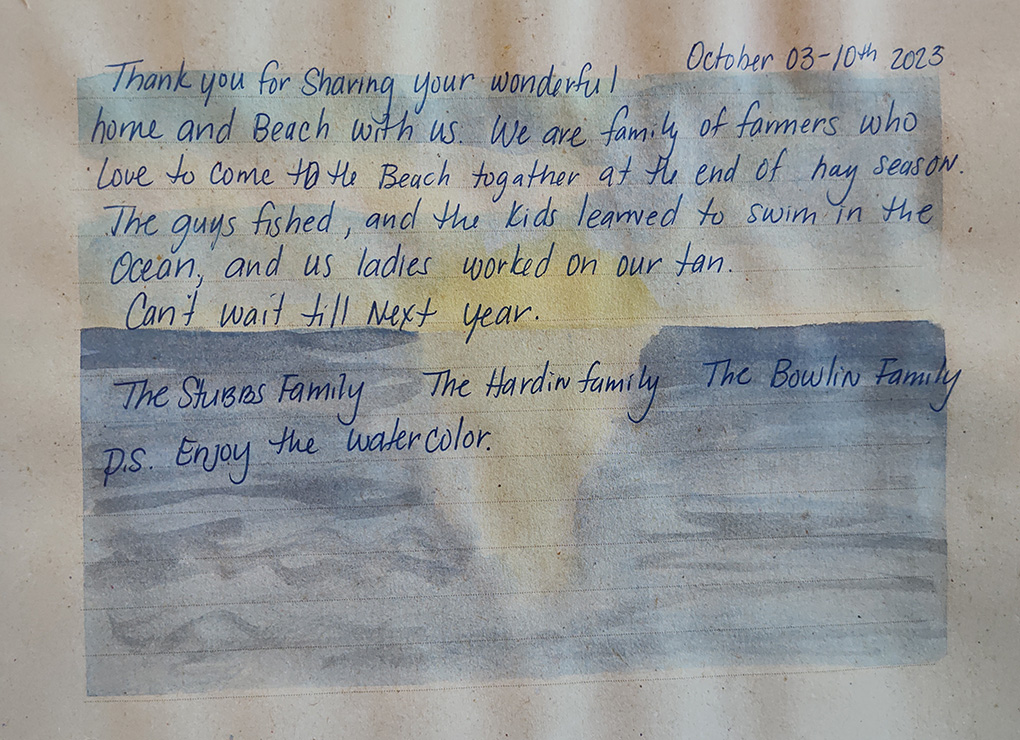 October 03-10th 2023
Thank you for Sharing your wonderful
home and Beach with us. We are family of farmers who
Love to Come to the Beach togather at the end of hay season.
The guys fished, and the kids learned to swim in the
Ocean, and us ladies worked on our tan.
Can't wait till Next year.
The StuBBs Family The Hardin family The Bowlin Family
P.S. Enjoy the watercolor.